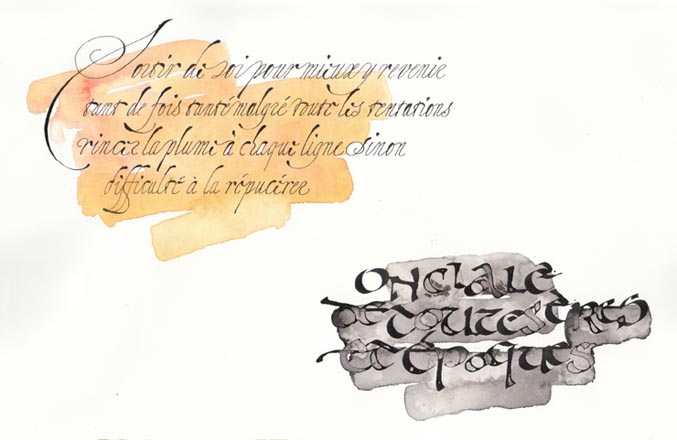 Sortir de soi pour mieux y revenir
tant de fois tanté malgré toute les tentations
rincer la plume à chaque ligne sinon
difficulté à la
ONCIALE
DE TOUTES ERES
ET EPOQUES